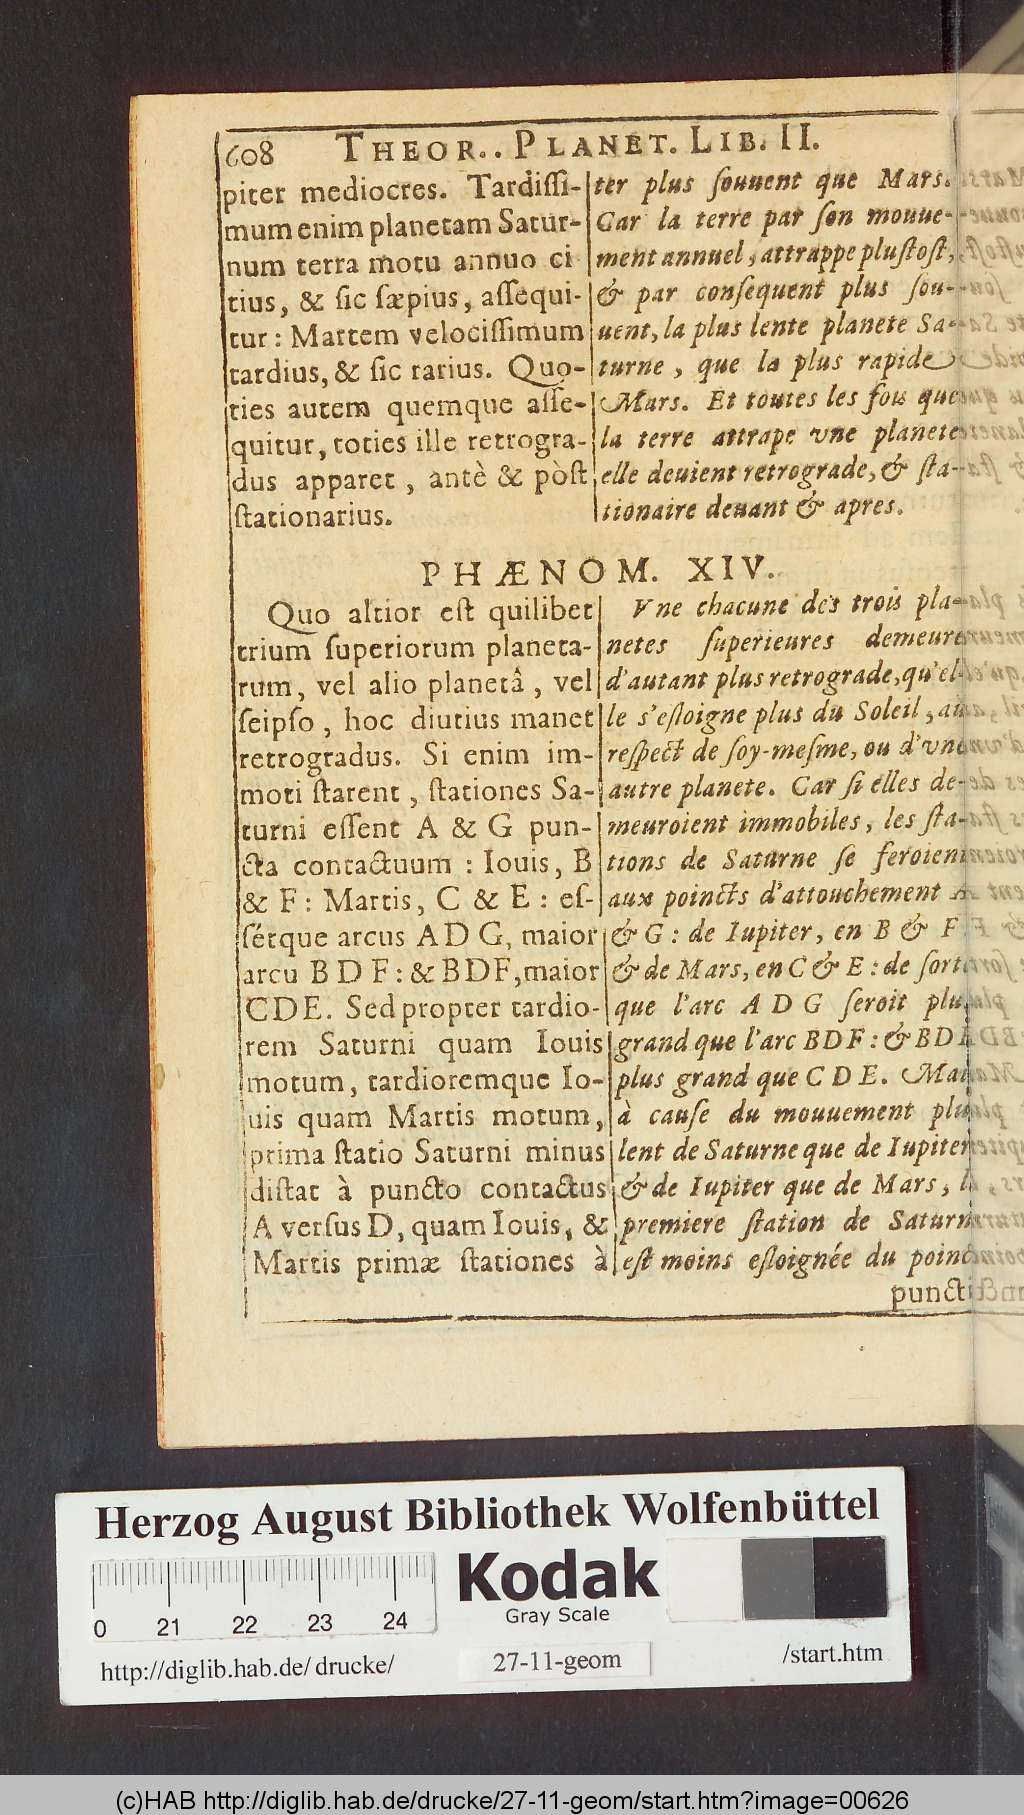 608 THEOR.. PLANET. LIB. II.
piter mediocres. Tardiſſi-
mum enim planetam Satur-
num terra motu annuo ci
tius, & ſic ſæpius, aſſequi-
tur: Martem velociſſimum
tardius, & ſic rarius. Quo-
ties autem quemque aſſe-
quitur, toties ille retrogra-
dus apparet, antè & pòſt
ſtationarius.
ter plus ſouuent que Mars.
Car la terre par ſon mouue-
ment annuel, attrappe pluſtoſt,
& par conſequent plus ſou-
uent, la plus lente planete Sa-
turne, que la plus rapide
Mars. Et toutes les fois que
la terre attrape vne planete
elle deuient retrograde, & ſta-
tionaire deuant & apres.
PHÆNOM. XIV.
Quo altior eſt quilibet
trium ſuperiorum planeta-
rum, vel alio planetâ, vel
ſeipſo, hoc diutius manet
retrogradus. Si enim im-
moti ſtarent, ſtationes Sa-
turni eſſent A & G pun-
cta contactuum: Iouis, B
& F: Martis, C & E: eſ-
ſétque arcus ADG, maior
arcu BDF: & BDF, maior
CDE. Sed propter tardio-
rem Saturni quam Iouis
motum, tardioremque Io-
uis quam Martis motum,
prima ſtatio Saturni minus
diſtat à puncto contactus
A verſus D, quam Iouis, &
Martis primæ ſtationes à
Vne chacune des trois pla-
netes ſuperieures demeure
d'autant plus retrograde, qu'el-
le s'eſloigne plus du Soleil, au
reſpect de ſoy-meſme, ou d'vne
autre planete. Car ſi elles de-
meuroient immobiles, les ſta-
tions de Saturne ſe feroient
aux poincts d'attouchement A
& G: de Iupiter, en B & F
& de Mars, en C & E: de ſorte
que l'arc A D G ſeroit plus
grand que l'arc BDF: & BDF
plus grand que C D E. Mais
à cauſe du mouuement plus
lent de Saturne que de Iupiter
& de Iupiter que de Mars, la
premiere ſtation de Saturne
eſt moins eſloignée du poinct
puncti
Herzog August Bibliothek Wolfenbüttel
Kodak
Gray Scale
0 21 22 23 24
http://diglib.hab.de/drucke/ 27-11-geom /start.htm
(c)HAB http://diglib.hab.de/drucke/27-11-geom/start.htm?image=00626